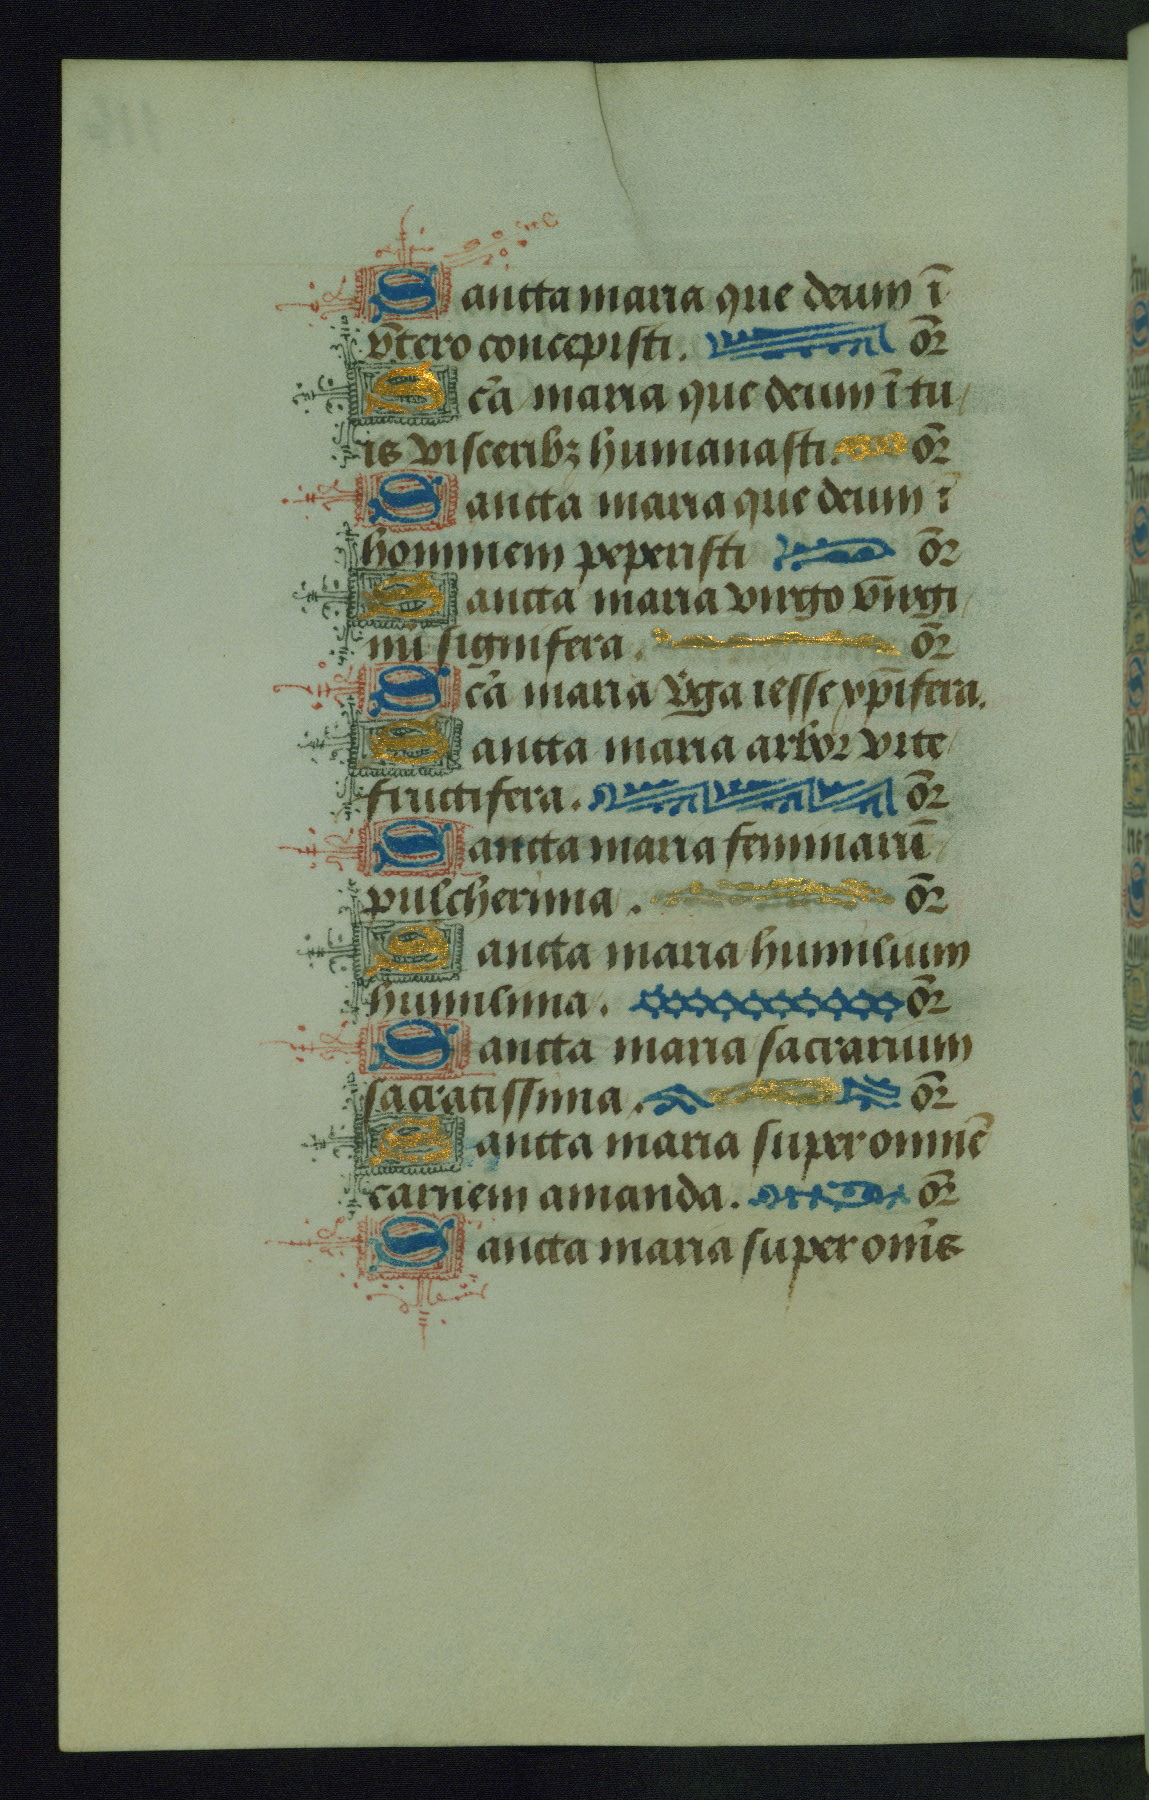 Sancta maria que deum ī
vtero concepisti. or̄
Scā maria que deum ī tu
is visceribꝫ humanasti. or̄
Sancta maria que deum ī
hominem peperisti or̄
Sancta maria virgo virgi
nū signifera. or̄
Scā maria v̄ga iesse xp̄ifera.
Sancta maria arbor vite
fructifera. or̄
Sancta maria feminarū
pulcherima. or̄
Sancta maria humilium
humilima. or̄
Sancta maria sacrarium
sacratissima. or̄
Sancta maria super omnē
carnem amanda. or̄
Sancta maria super om̄s